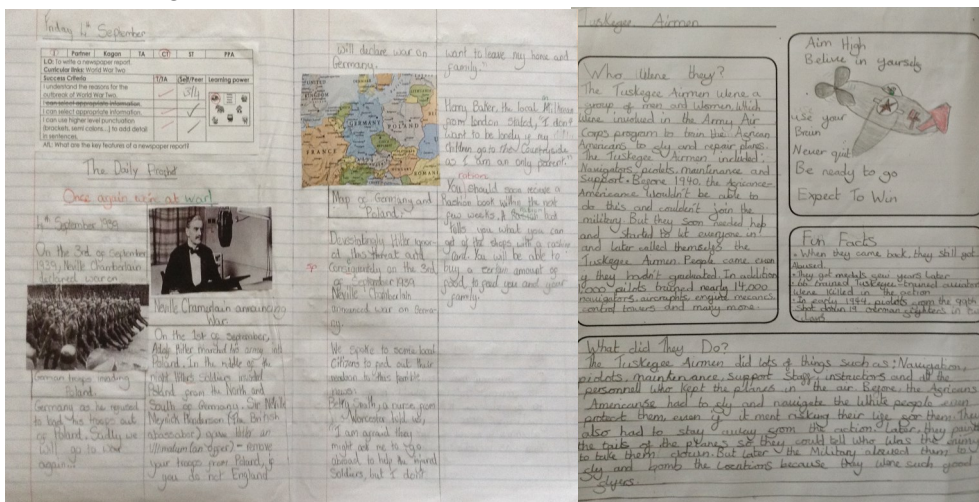 Friday 4th September
Partner Kagan TA CT ST PPA
LO: To write a newspaper report.
Curricular links: World War Two.
Success Criteria T/TA Self/Peer Learning power
I understand the reasons for the
outbreak of World War Two.
I can select appropriate information.
I can select appropriate information.
I can use higher level punctuation
(brackets, semi colons...) to add detail
in sentences.
AfL: What are the key features of a newspaper report?
The Daily Prophet
Once again we're at war!
4th September 1939
On the 3rd of September
1939, Neville Chamberlain
declared war on
Neville Champrlain announcing
War.
German troops invading
Poland.
Germany as he refused
to load his troops out
of Poland. Sadly we
will go to war
again...
On the 1st of September,
Adolf Hitler marched his army into
Poland. In the middle of the
night Hitler's soldiers invaded
Poland from the North and
South of Germany. Sir Neville
Neyrich Henderson (the British
ambassador) gave Hitler an
Ultimatum (an offer) - remove
your troops from Poland, if
you do not England
will declare war on
Germany.
GERMANY
POLAND
FRANCE
Map of Germany and
Poland.
Devestatingly Hitler ignor-
ed this threat and
on the 3rd
of September 1939
Neville Chamberlain
announced war on Germa-
ny.
We spoke to some local
Citizens to find out their
reation to this terrible
news.
Betty Smith, a nurse from
Worcester told us,
I am afraid they
might ask me to go
abroad to help the injured
Soldiers, but I don't
want to leave my home and
family."
Harry Baker, the local
from London Stated, "I don't
want to be lonely if my
Children go to the Countryside
as I am an only parent."
rations
You should soon recieve a
Rashion book within the next
few weeks. A
tells you what you can
get at the shops with a rashion
and You will be able to
buy a certain amount of
food, to feed you and your
family.
Tuskegee Airmen
Who Were they?
The Tuskegee Airmen were a
group of men and women which
were involved in the Army Air
Corps program to train the African
Americans to fly and repair planes.
The Tuskegee Airmen included:
Navigators, pilots, maintenance and
Support. Before 1940, the African-
Americans wouldn't be able to
do this and couldn't join the
military. But they soon needed help
and started to let everyone in
and later called themselfs the
Tuskegee Airmen. People came even
if they hadn't graduated. In addition
1000 pilots trained nearly 14,000
navigators, aircrafts engine mecanics
control towers and many more.
Aim High
Belive in yourself
use your
Brain
Never quit
Be ready to go
Expect To Win
Fun Facts
• When they came back, they still got
abused.
• They got medals few years later
• 66 trained Tuskegee-trained aviators
were killed in the action
• In early 1944, pilots from the 99th
Shot down 12 German fighters in two
days
What did They Do?
The Tuskegee Airmen did lots of things such as: Navigation,
pilots, maintenance, support Staff, instructors and all the
personnell who kept the planes in the air. Before, the African
Americans had to fly and navigate the White people even
protect them even if it ment risking their life for them. They
also had to stay away from the action. Later, they painted
the tails of the planes so they could tell who was the enimie
to take them down. But later the Military alowed them to
fly and bomb the locations because they were such good
flyers.